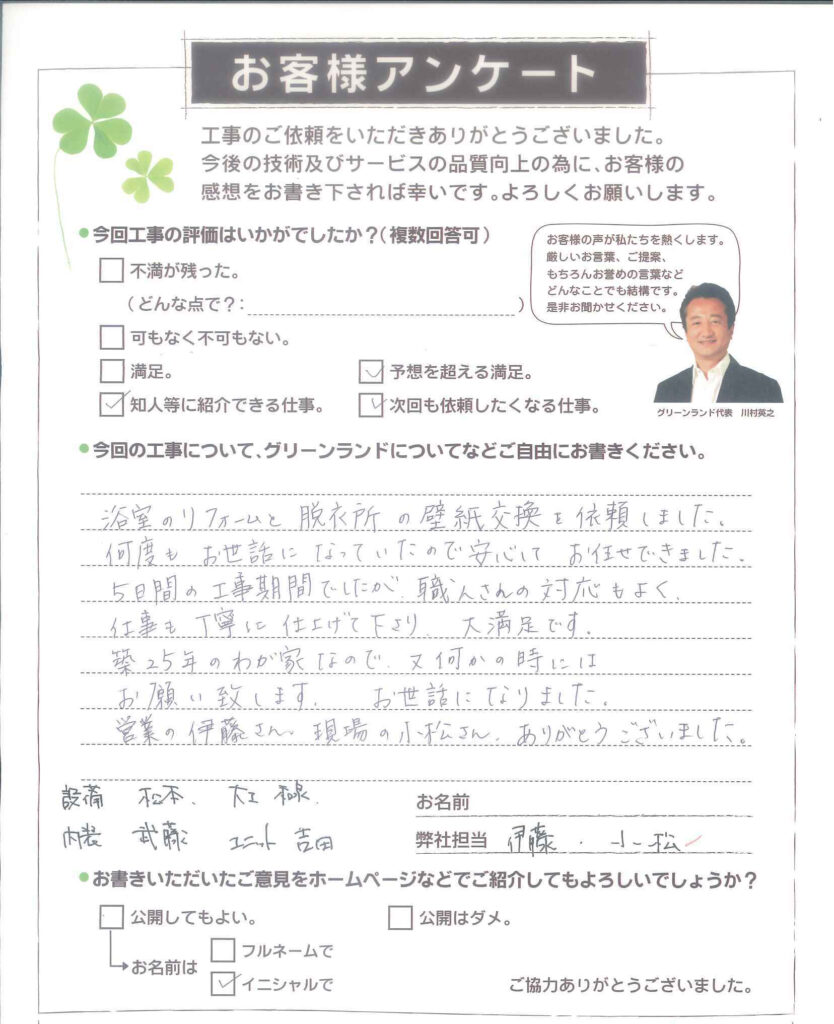 お客様アンケート
工事のご依頼をいただきありがとうございました。
今後の技術及びサービスの品質向上の為に、お客様の
感想をお書き下されば幸いです。よろしくお願いします。
●今回工事の評価はいかがでしたか?(複数回答可)
不満が残った。
(どんな点で?: )
可もなく不可もない。
満足。
予想を超える満足。
知人等に紹介できる仕事。
次回も依頼したくなる仕事。
お客様の声が私たちを熱くします。
厳しいお言葉、ご提案、
もちろんお誉めの言葉など
どんなことでも結構です。
是非お聞かせください。
グリーンランド代表 川村英之
●今回の工事について、グリーンランドについてなどご自由にお書きください。
浴室のリフォームと脱衣所の壁紙交換を依頼しました。
何度もお世話になっていたので安心してお任せできました。
5日間の工事期間でしたが、職人さんの対応もよく、
仕事も丁寧に仕上げて下さり、大満足です。
築25年のわが家なので、又何かの時には
お願い致します。 お世話になりました。
営業の伊藤さん、現場の小松さん、ありがとうございました。
設備 松本、大工
内装 武藤 ユニット 吉田
お名前
弊社担当 伊藤・小松
●お書きいただいたご意見をホームページなどでご紹介してもよろしいでしょうか?
公開してもよい。
公開はダメ。
お名前は
フルネームで
イニシャルで
ご協力ありがとうございました。